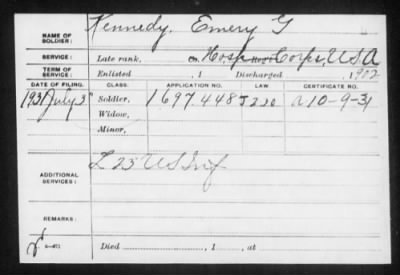 Kennedy, Emery G
NAME OF SOLDIER:
SERVICE: Late rank, Hosp Corps USA
TERM OF SERVICE: Enlisted , 1 Discharged , 1902
DATE OF FILING. CLASS. APPLICATION NO. LAW. CERTIFICATE NO.
1931 July 3 Soldier, 1697448 J230 a 10-9-31
Widow,
Minor,
ADDITIONAL SERVICES: L 23 US Inf
REMARKS:
Died , 1 , at